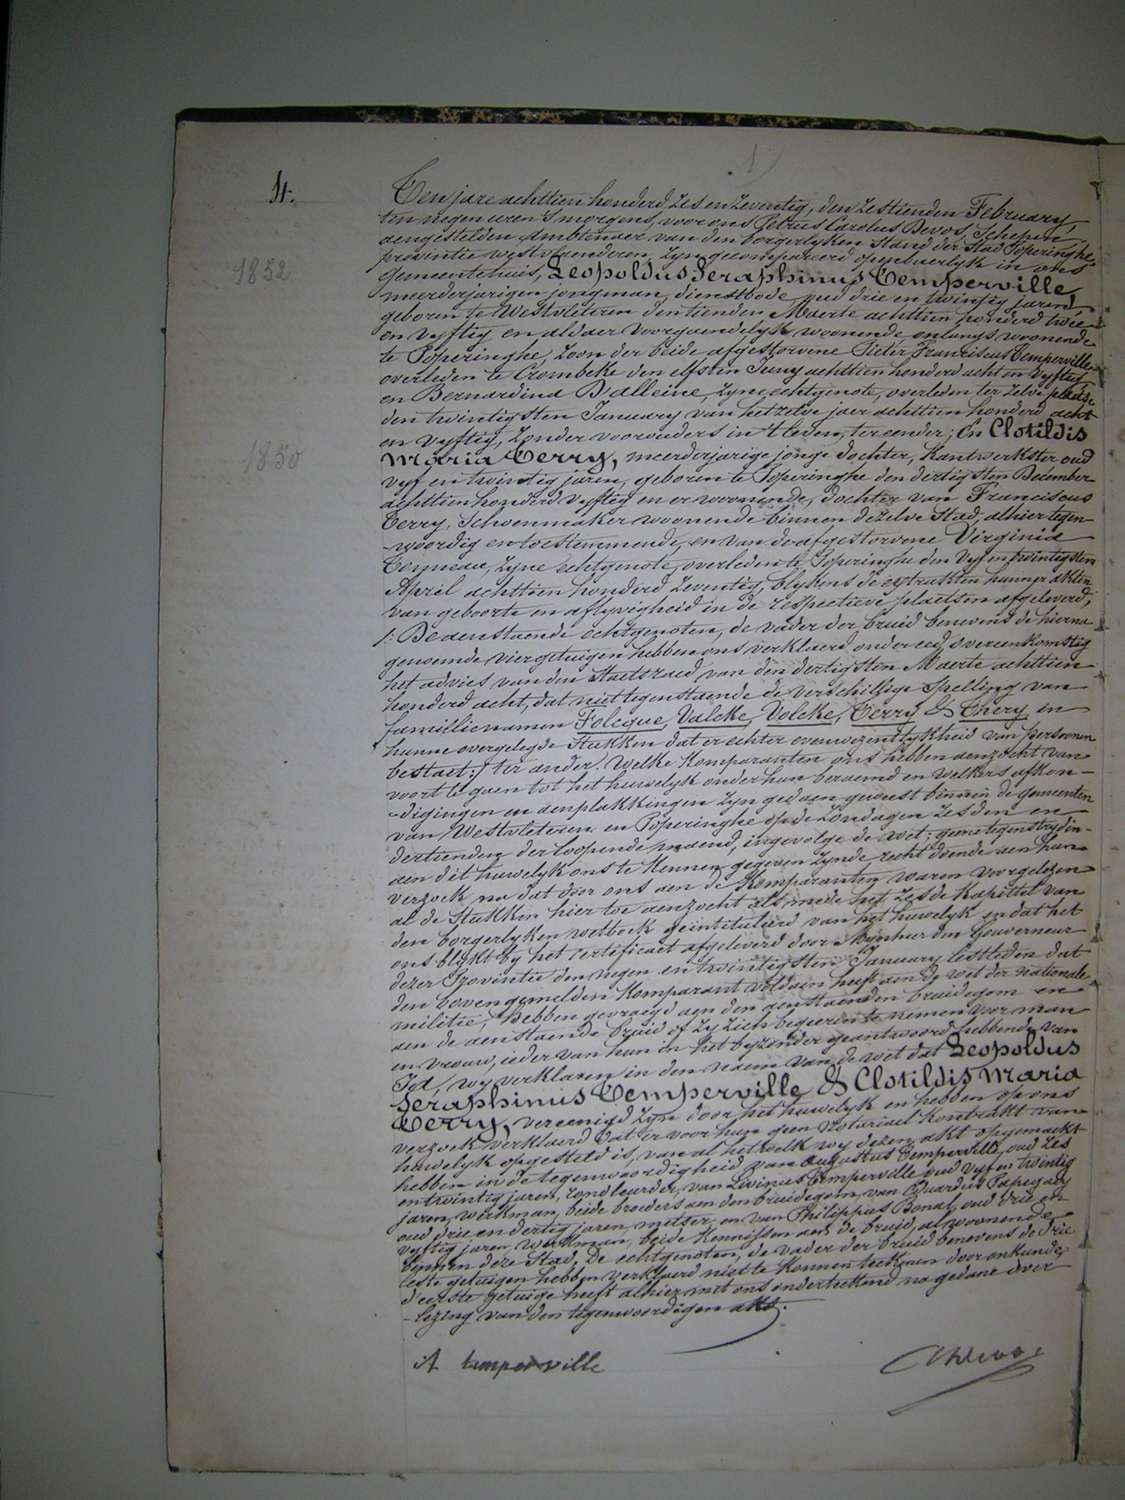 4.
1852
1850
Ten jare achttien honderd zes en zeventig, den zestienden February
ten negen uren 's morgens, voor ons Petrus Carolus Devos, Schepen
aengestelden Ambtenaer van den borgerlyken Stand der Stad Poperinghe
provintie westvlaenderen, zyn gecompareerd opebaerlyk in ons
Gemeentehuis, Leopoldus Seraphinus Temperville
meerderjarigen jongman, dienstbode, oud drie en twintig jaren,
geboren te Westvleteren den tienden Maerte achttien honderd twee
en vyftig en aldaer voorgaendelyk woonende, onlangs woonende
te Poperinghe, zoon der beide afgestorvene Pieter Franciscus Temperville
overleden te Crombeke den elfsten Juny achttien honderd acht en vyftig
en Bernardina Dalleine, zyne echtgenote, overleden ter zelve plaetse
den twintigsten January van het zelve jaer achttien honderd acht
en vyftig, zonder voorouders in 't leven, ter eender; En Clotildis
Maria Terry, meerderjarige jonge dochter, kantwerkster oud
vyf en twintig jaren, geboren te Poperinghe den dertigsten December
achttien honderd vyftig en er woonende, dochter van Franciscus
Terry, Schoenmaker woonende binnen dezelve Stad, alhier tegen-
-woordig en toestemmende, en van de afgestorvene Virginia
zyne echtgenote, overleden te Poperinghe den vyf en twintigsten
April achttien honderd zeventig, blykens de extrakten hunner akten
van geboorte en aflyvigheid in de respectieve plaetsen afgeleverd;
/: De aenstaende echtgenoten, de vader der bruid benevens de hierna
genoemde vier getuigen hebben ons verklaerd onder eed, overeenkomstig
het advies van den Staetsraed van den dertigsten Maerte achttien
honderd acht, dat niettegenstaende de verschillige spelling van
familienamen Folcque, Valcke, Volcke, Terry & Thery en
hunne overgelegde Stukken dat er echter evenwezentlykheid van persoonen
bestaet:/ ter ander. Welke Komparanten ons hebben aenzocht van
voort te gaen tot het huwelyk onder hun beraemd en welkers afkon-
-digingen en aenplakkingen zyn gedaen geweest binnen de gemeenten
van Westvleteren en Poperinghe op de Zondagen zesden en
dertienden der loopende maend, ingevolge de wet; geene tegenstrydin-
aen dit huwelyk ons te kennen gegeven zynde, recht doende aen hun
verzoek na dat door ons aen de Komparanten waren voorgelezen
al de Stukken hier toe aenzocht als mede het zesde Kapittel van
den borgerlyken wetboek geïntituleerd van het huwelyk en dat het
ons blykt by het certificaet afgeleverd door Mynheer den Gouverneur
dezer Provintie den negen en twintigsten January lestleden dat
den bovengemelden Komparant voldaen heeft aen de wet der nationale
militie, Hebben gevraegd aen den aenstaenden bruidegom en
aen de aenstaende bruid of zy zich begeeren te nemen voor man
en vrouw, ieder van hun in het byzonder geantwoord hebbende van
Ja, wy verklaren in den naem van de wet dat Leopoldus
Seraphinus Temperville & Clotildis Maria
Terry, vereenigd zyn door het huwelyk en hebben op ons
verzoek verklaerd dat er voor hun geen Notariael Kontrakt van
huwelyk opgesteld is, van al hetwelk wy dezen akt opgemaekt
hebben in de tegenwoordigheid van Augustus Temperville, oud zes
en twintig jaren, zandleurder, van Livinus Temperville oud vyf en twintig
jaren, werkman, beide broeders aen den bruidegom, van Eduardus Papegaey
oud drie en dertig jaren, metser, en van Philippus Bonal, oud drie en
vyftig jaren, werkman, beide Kennissen aen de bruid, al woonende
binnen deze Stad, De echtgenoten, de vader der bruid benevens de drie
leste getuigen hebben verklaerd niet te konnen teekenen door onkunde,
d'eerste getuige heeft alhier met ons onderteekend na gedane over-
-lezing van den tegenwoordigen akt.
A temperville